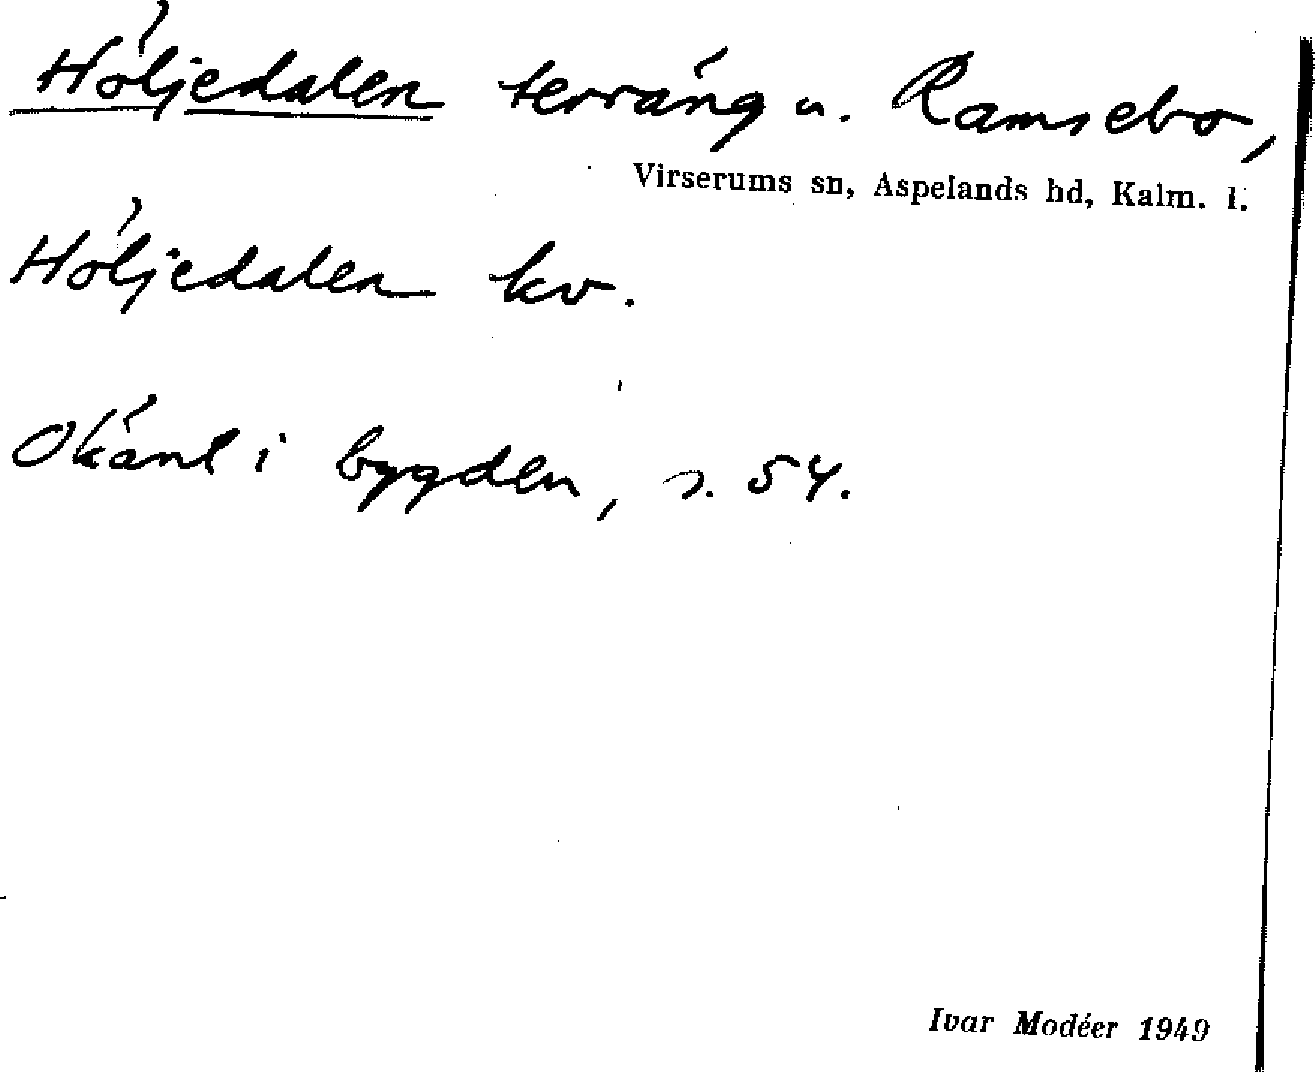 Höljedalen terräng u. Ramsebo,
Virserums sn, Aspelands hd, Kalm. l.
Höljedalen kv.
Okänt i bygden, s. 54.
Ivar Modéer 1949